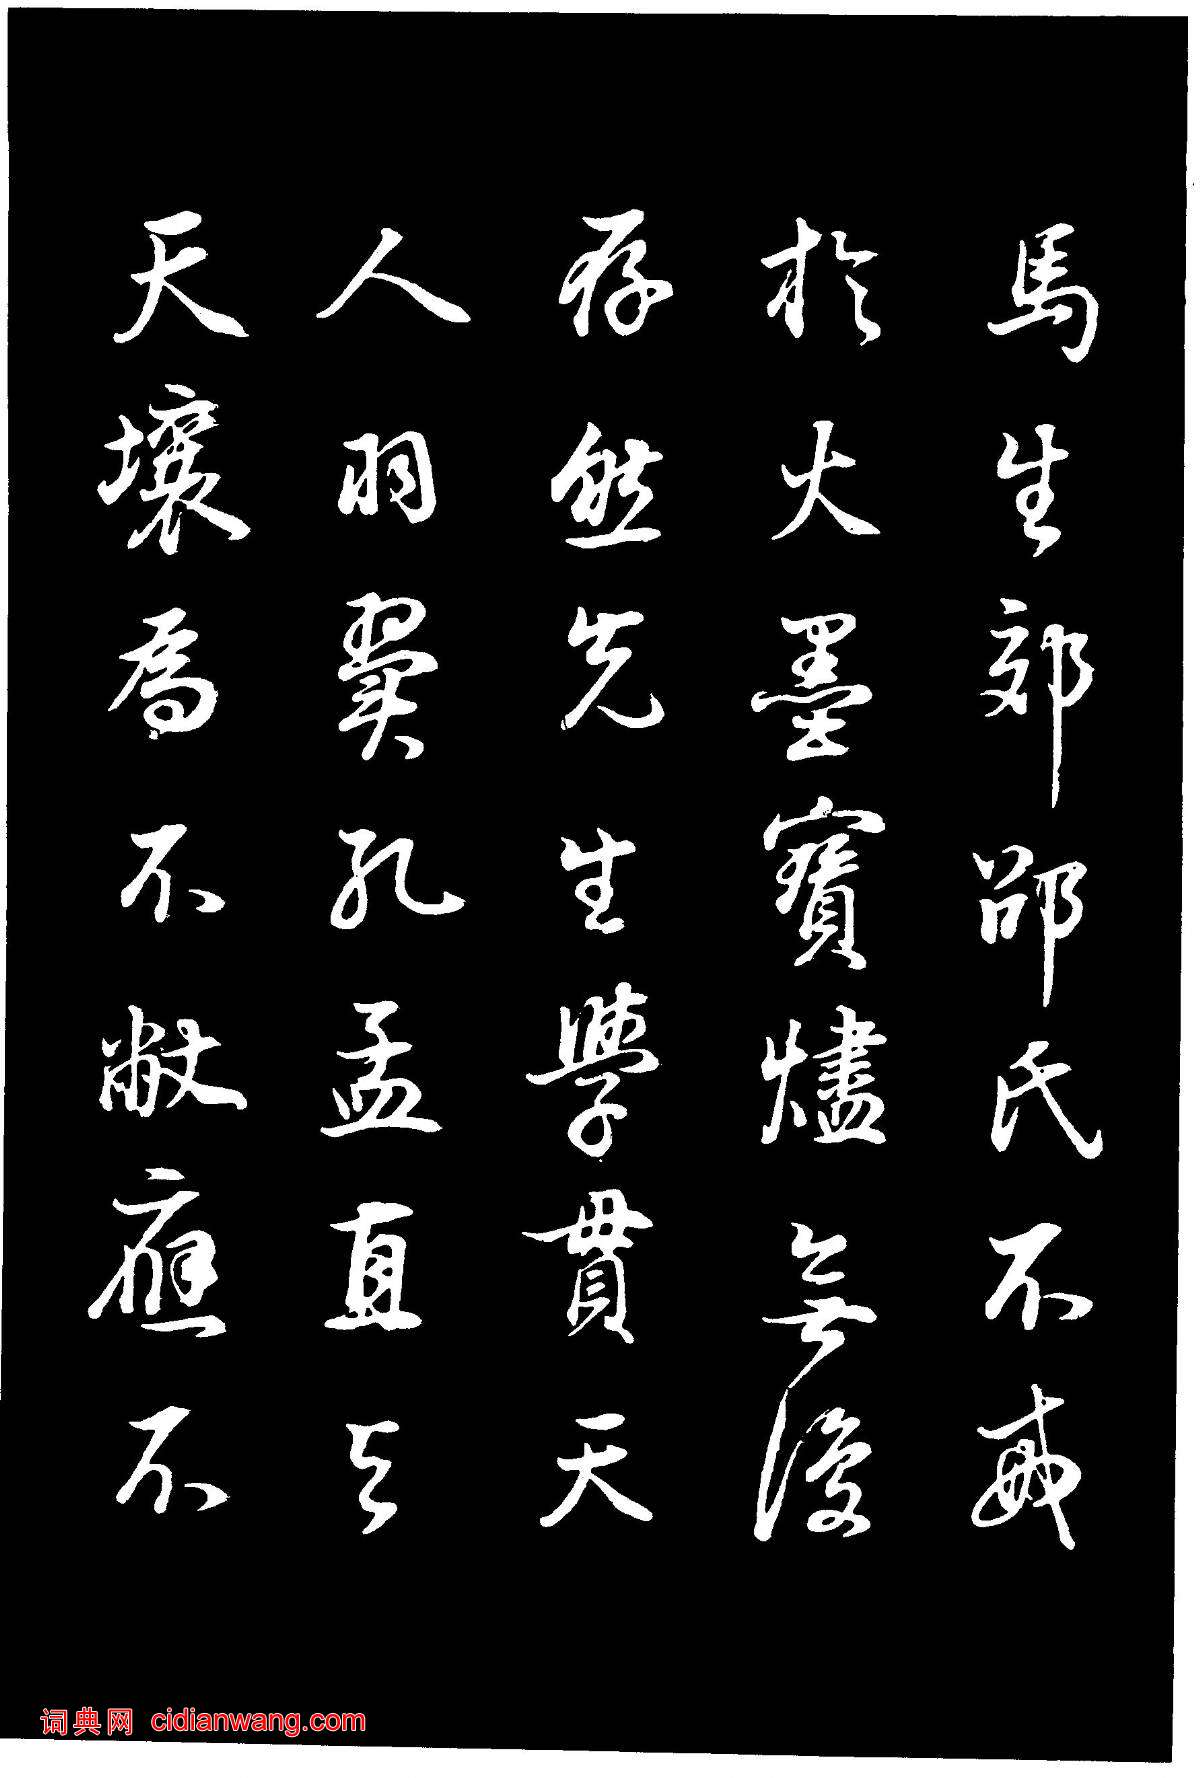 馬生郊邵氏不戒
於火墨寶燼無復
存然先生學貫天
人羽翼孔孟直与
天壤為不敝應不
词典网 cidianwang.com